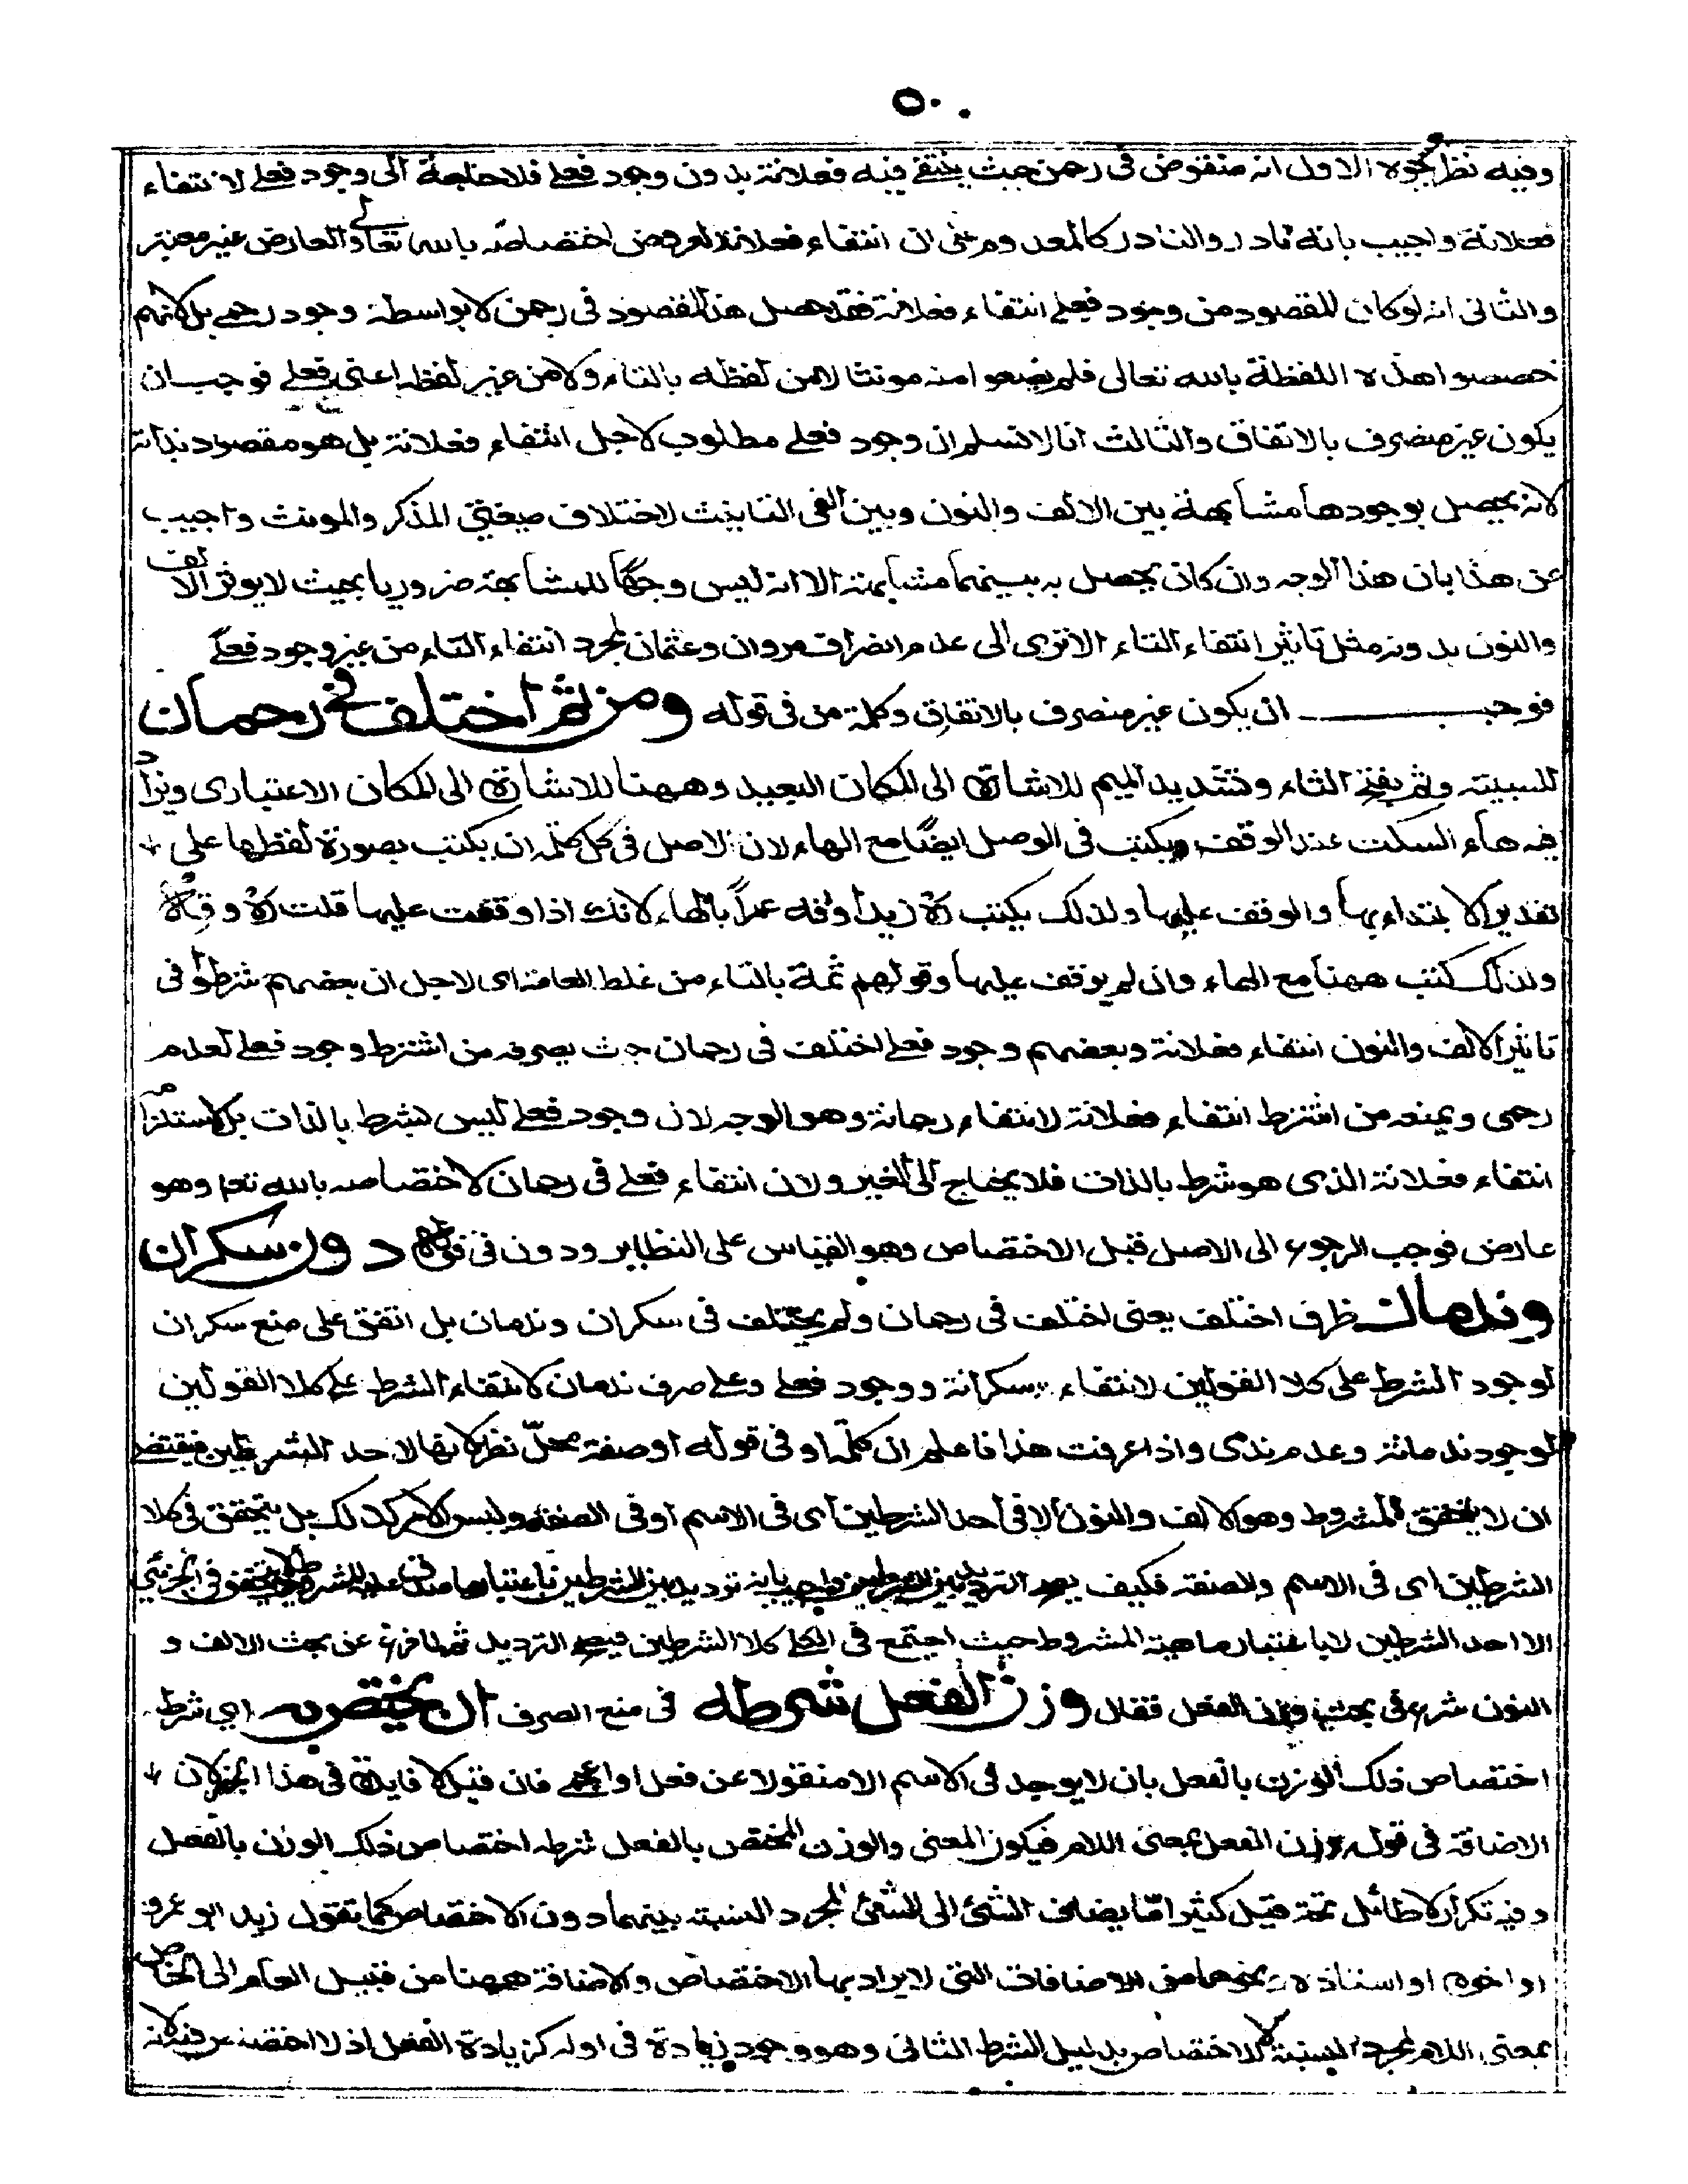 ۵۰
وفيه نظر بوجوه الاول انه منقوض فى رحمن حيث ينتفى فيه فعلانة بدون وجود فعلى فلا حاجة الى وجود فعلى لانتفاء
فعلانة واجيب بانه نادر والنادر كالمعدوم على ان انتفاء فعلانة لعروض اختصاصه بالله تعالى والعارض غير معتبر
والثانى انه لو كان المقصود من وجود فعلى انتفاء فعلانة فقد حصل هذا المقصود فى رحمن لا بواسطة وجود رحمى بل لانهم
خصصوا هذه اللفظة بالله تعالى فلم يضعوا منه مونثا لا من لفظه بالتاء ولا من غير لفظه اعنى فعلى فوجب ان
يكون غير منصرف بالاتفاق والثالث انا لا نسلم ان وجود فعلى مطلوب لاجل انتفاء فعلانة بل هو مقصود بذاته
لانه يحصل بوجودها مشابهة بين الالف والنون وبين الفى التانيث لاختلاف صيغتى المذكر والمونث واجيب
عن هذا بان هذا الوجه وان كان يحصل به بينهما مشابهة الا انه ليس وجها للمشابهة ضروريا بحيث لا يوثر الالف
والنون بدونه مثل تاثير انتفاء التاء الا ترى الى عدم انصراف مروان وعثمان لمجرد انتفاء التاء من غير وجود فعلى
فوجب ان يكون غير منصرف بالاتفاق وكلمة من فى قوله ومن ثم اختلف فى رحمان
للسببية وثم بفتح الثاء وتشديد الميم للاشارة الى المكان البعيد وههنا للاشارة الى المكان الاعتبارى ويزاد
فيه هاء السكت عند الوقف ويكتب فى الوصل ايضًا مع الهاء لان الاصل فى كل كلمة ان يكتب بصورة لفظها على
تقدير الابتداء بها والوقف عليها ولذلك يكتب رَهْ زيدا وقه عمرًا بالهاء لانك اذا وقفت عليها قلت رَهْ وقِهْ
ولذلك كتب ههنا مع الهاء وان لم يوقف عليها وقولهم ثمة بالتاء من غلط العامة اى لاجل ان بعضهم شرطوا فى
تاثير الالف والنون انتفاء فعلانة وبعضهم وجود فعلى اختلف فى رحمان حيث يصرفه من اشترط وجود فعلى لعدم
رحمى ويمنعه من اشترط انتفاء فعلانة لانتفاء رحمانة وهو الوجه لان وجود فعلى ليس بشرط بالذات بل لاستلزامه
انتفاء فعلانة الذى هو شرط بالذات فلا يحتاج الى الغير ولان انتفاء فعلى فى رحمان لاختصاصه بالله تعم وهو
عارض فوجب الرجوع الى الاصل قبل الاختصاص وهو القياس على النظاير ودون فى قوله دون سكران
وندمان ظرف اختلف يعنى اختلف فى رحمان ولم يختلف فى سكران وندمان بل اتفق على منع سكران
لوجود الشرط على كلا القولين لانتفاء سكرانة ووجود فعلى وعلى صرف ندمان لانتفاء الشرط على كلا القولين
لوجود ندمانة وعدم ندمى واذا عرفت هذا فاعلم ان كلمة او فى قوله او صفة محل نظر لانها لاحد الشرطين فيقتضى
ان لا يتحقق المشروط وهو الالف والنون الا فى احد الشرطين اى فى الاسم او فى الصفة وليس الامر كذلك بل يتحقق فى كلا
الشرطين اى فى الاسم والصفة فكيف يصح الترديد بين الشرطين واجيب بانه ترديد بين الشرطين باعتبار ما صدق عليه المشروط لا يتحقق فى الجزئى
الا احد الشرطين لا باعتبار ماهية المشروط حيث اجتمع فى الكلى كلا الشرطين فيصح الترديد ثم لما فرغ عن بحث الالف و
النون شرع فى بحث وزن الفعل فقال وزن الفعل شرطه فى منع الصرف ان يختص به اى شرطه
اختصاص ذلك الوزن بالفعل بان لا يوجد فى الاسم الا منقولا عن فعل او اعجمى فان قيل لا فايدة فى هذا لان
الاضافة فى قوله وزن الفعل بمعنى اللام فيكون المعنى والوزن المختص بالفعل شرطه اختصاص ذلك الوزن بالفعل
وفيه تكرار لا طائل تحته قيل كثيرا ما يضاف الشئ الى الشئ لمجرد النسبة بينهما دون الاختصاص كما تقول زيد ابو عمرو
او اخوه او استاذه ونحوها من الاضافات التى لا يراد بها الاختصاص والاضافة ههنا من قبيل العام الى الخاص
بمعنى اللام لمجرد النسبة لا للاختصاص بدليل الشرط الثانى وهو وجود زيادة فى اوله كزيادة الفعل اذ لا اختصاص فيه لانه